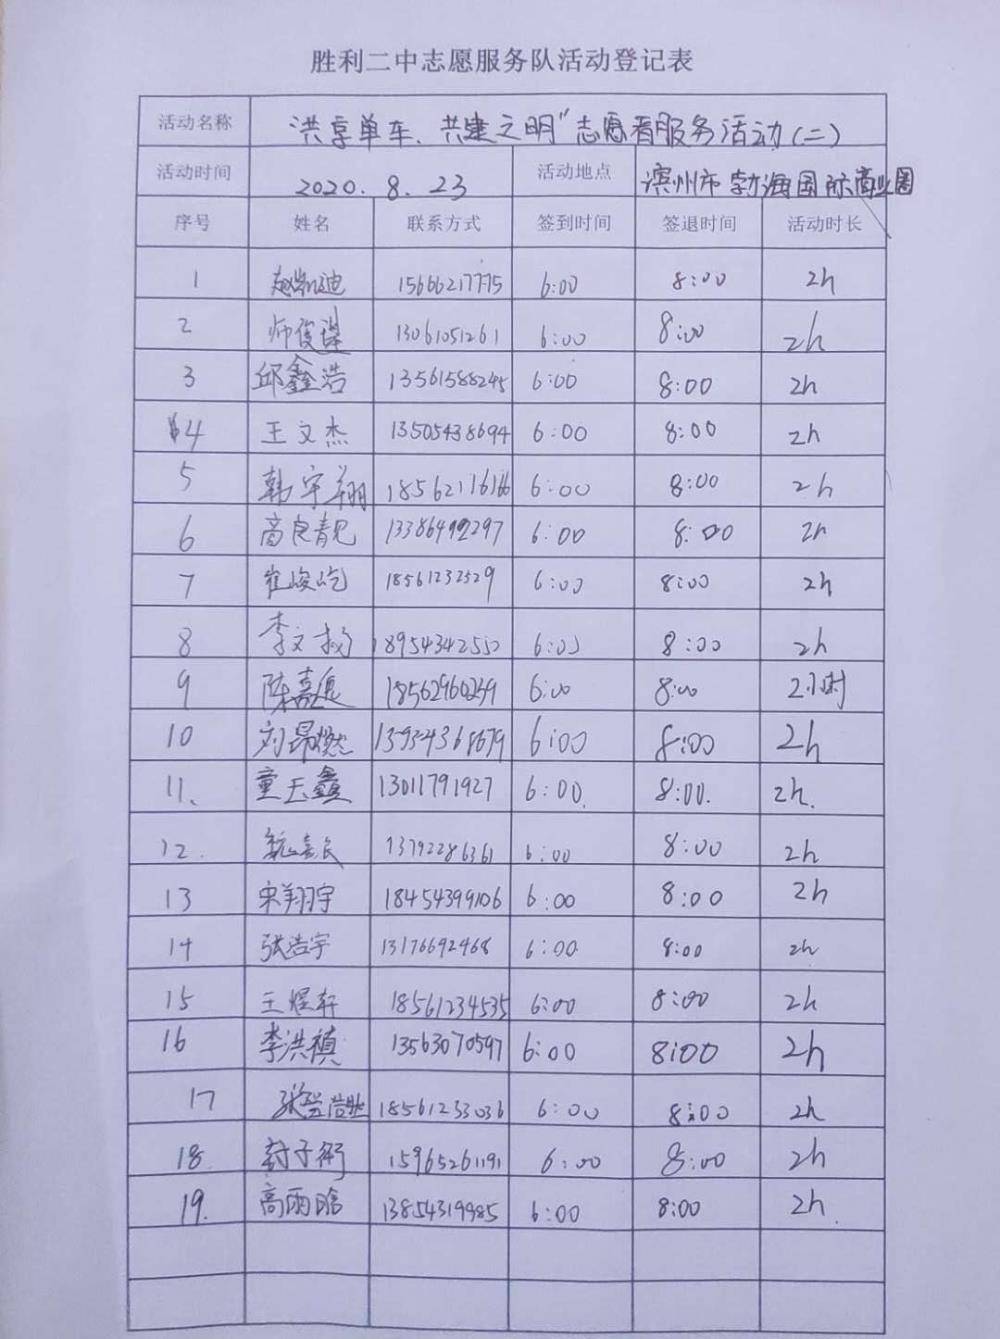 胜利二中志愿服务队活动登记表
活动名称 洪享单车、共建文明"志愿者服务活动(二)
活动时间 2020.8.23 活动地点 滨州市渤海国际商业圈
序号 姓名 联系方式 签到时间 签退时间 活动时长
1 赵凯迪 15666217775 6:00 8:00 2h
2 师俊 13061051261 6:00 8:00 2h
3 邱鑫浩 13561588245 6:00 8:00 2h
4 王文杰 13505438694 6:00 8:00 2h
5 韩宇翔 18562116166 6:00 8:00 2h
6 高良 13386492297 6:00 8:00 2h
7 崔峻屹 18561232529 6:00 8:00 2h
8 李文 18954342550 6:00 8:00 2h
9 陈嘉 18562960259 6:00 8:00 2小时
10 刘昂燃 13934368679 6:00 8:00 2h
11. 童玉鑫 13011791927 6:00. 8:00. 2h.
12. 魏嘉良 13792286361 6:00 8:00 2h
13 宋翔宇 18454399106 6:00 8:00 2h
14 张浩宇 13176692468 6:00 8:00 2h
15 王煜轩 18561234535 6:00 8:00 2h
16 李洪桢 13563070597 6:00 8:00 2h
17 张 18561233036 6:00 8:00 2h
18. 封子衔 15965261191 6:00 8:00 2h
19. 高雨晗 13854319985 6:00 8:00 2h.